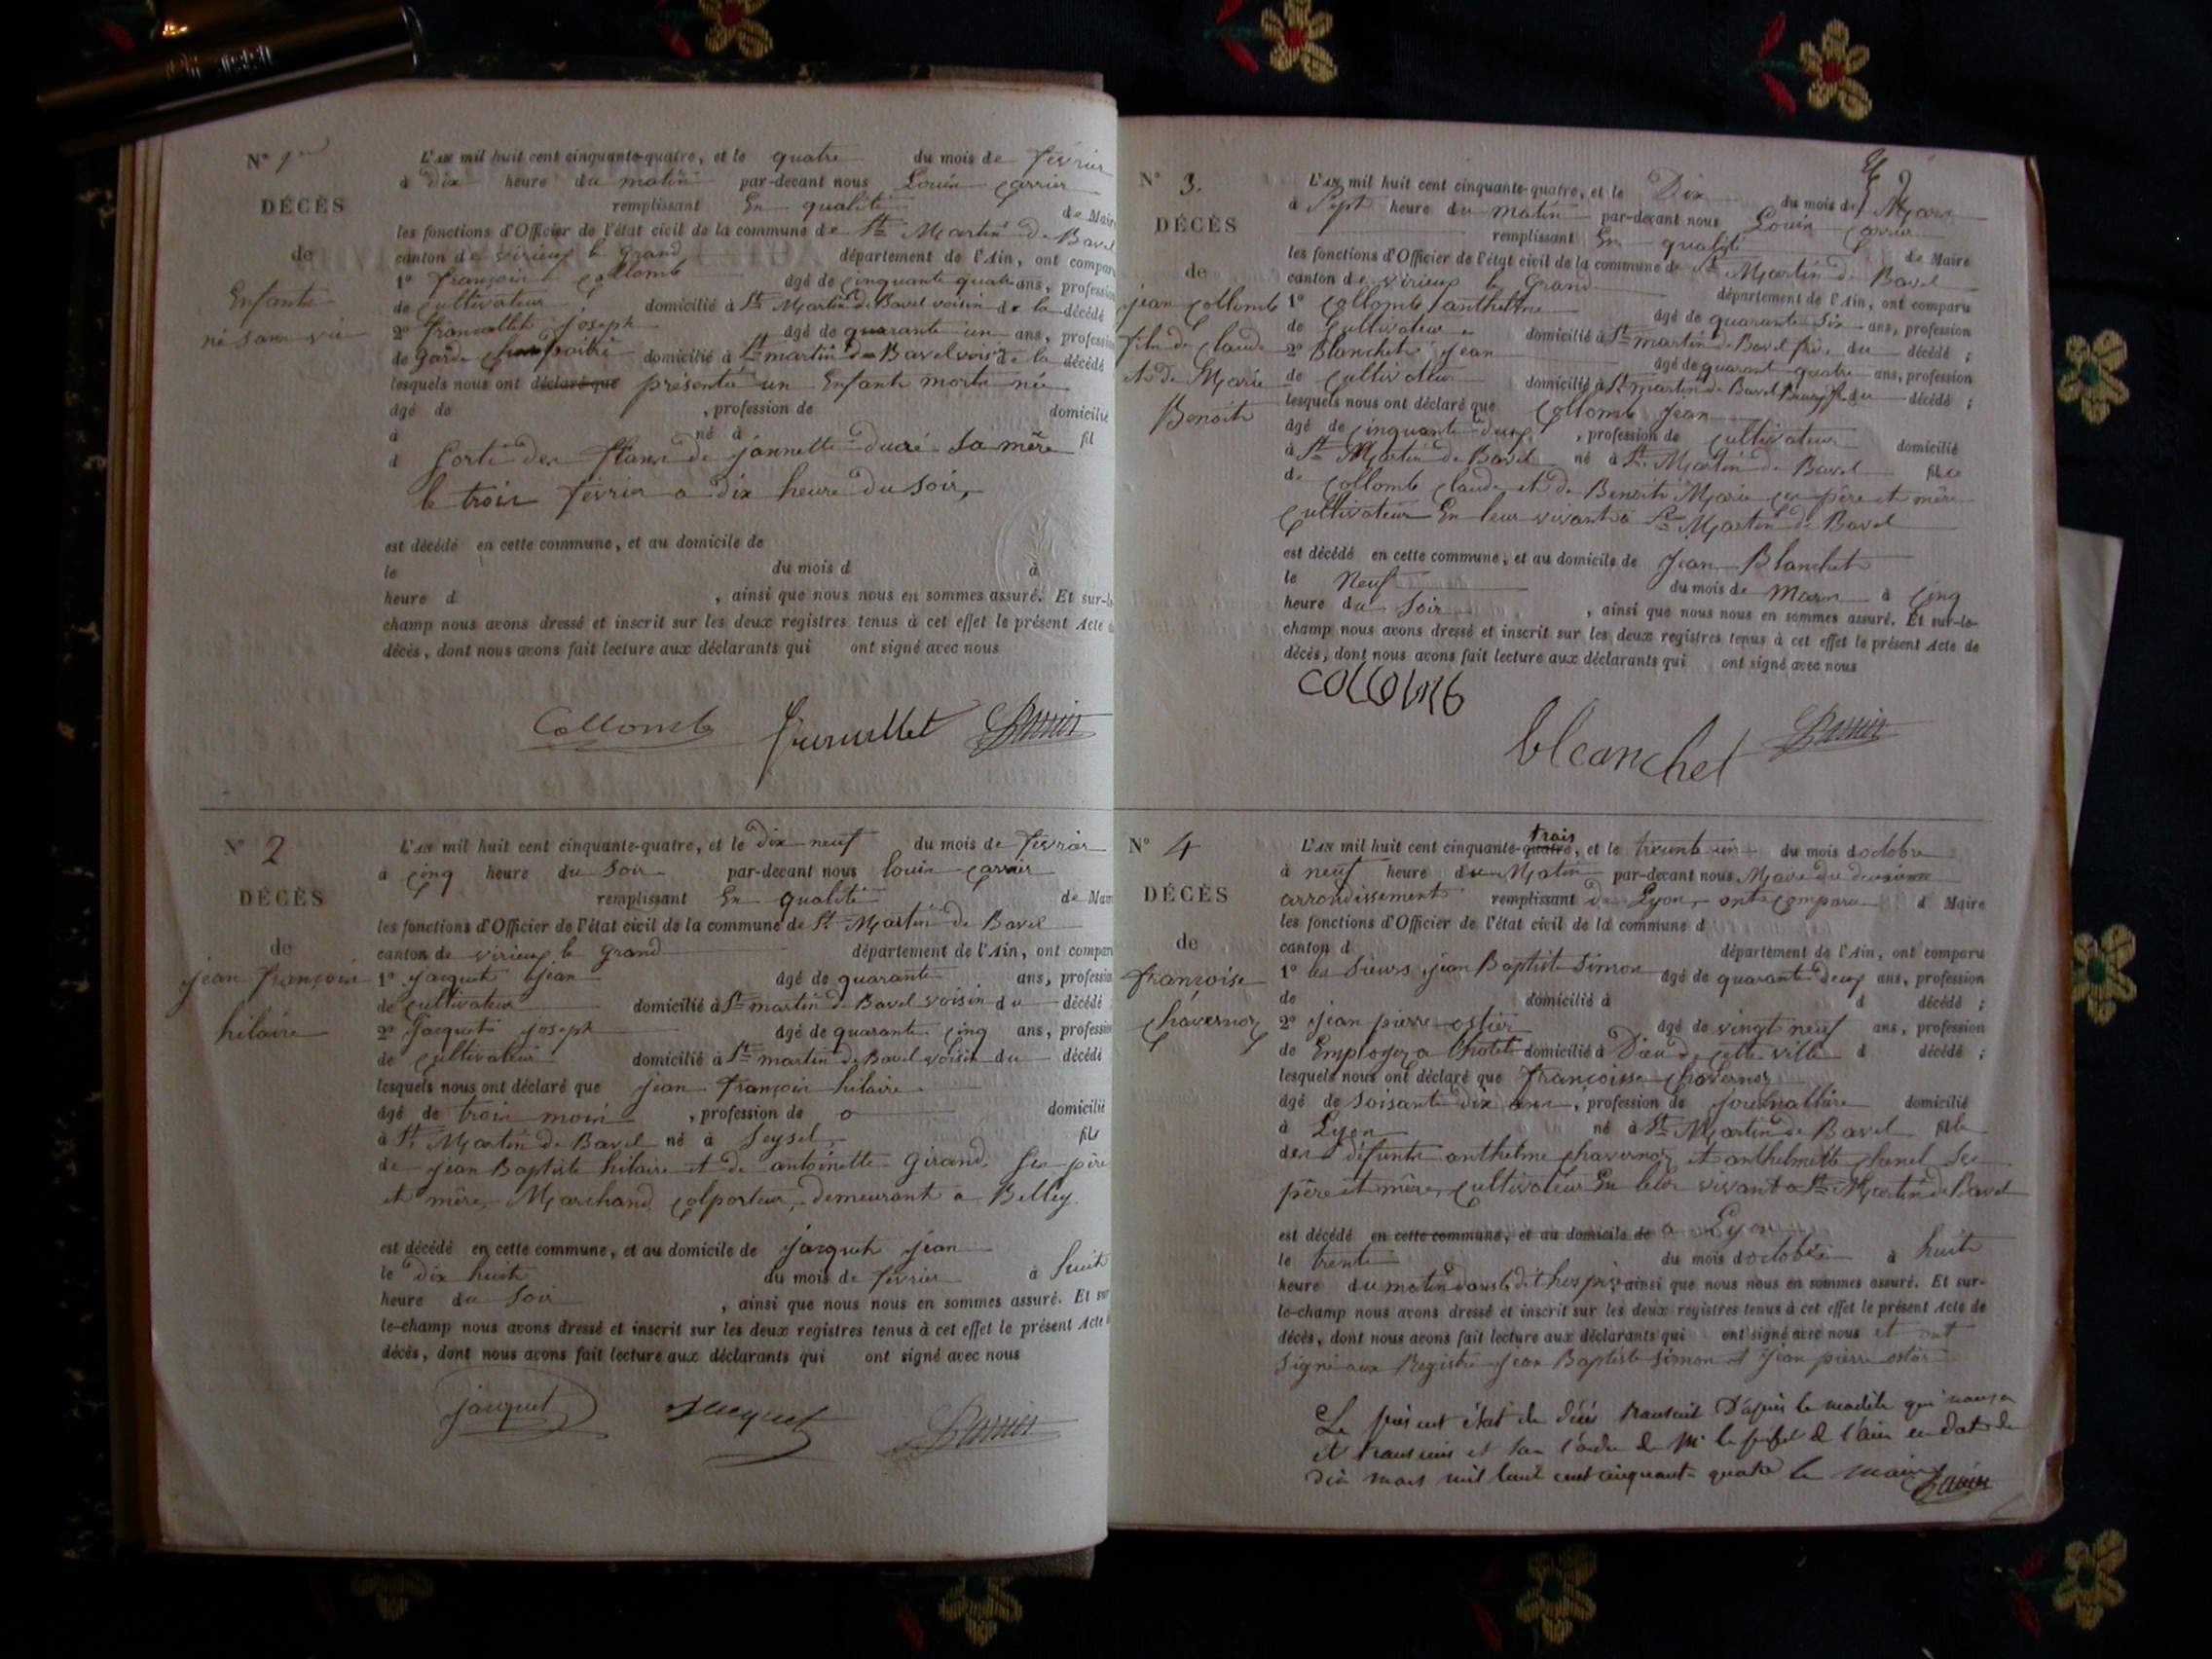 N° 1er
L'AN mil huit cent cinquante-quatre, et le quatre du mois de février
à dix heure du matin par-devant nous Louis Carrier
DÉCÈS
remplissant En qualité de Maire
les fonctions d'Officier de l'état civil de la commune de St Martin de Bavel
de
canton de virieux le Grand département de l'Ain, ont comparu
1° françois Collomb âgé de cinquante quatre ans, profession
Enfant
de Cultivateur domicilié à St Martin de Bavel voisin de la décédé
né sans vie
2° francillet joseph âgé de quarante un ans, profession
de garde domicilié à St martin de Bavel voisin de la décédé
lesquels nous ont déclaré que présenté un Enfant mort né
âgé de , profession de domicilié
à né à fil
d Sorti des flans de jannette ducré sa mère
le trois février a dix heure du soir,
est décédé en cette commune, et au domicile de
le du mois d à
heure d , ainsi que nous nous en sommes assuré. Et sur-le-
champ nous avons dressé et inscrit sur les deux registres tenus à cet effet le présent Acte de
décès, dont nous avons fait lecture aux déclarants qui ont signé avec nous
Collomb francillet Carrier
N° 2
L'AN mil huit cent cinquante-quatre, et le dix neuf du mois de février
à cinq heure du soir par-devant nous louis carrier
DÉCÈS
remplissant En qualité de Maire
les fonctions d'Officier de l'état civil de la commune de St Martin de Bavel
de
canton de virieux le grand département de l'Ain, ont comparu
jean françois
1° jacquet jean âgé de quarante ans, profession
de cultivateur domicilié à St martin de Bavel voisin du décédé
hilaire
2° jacquet joseph âgé de quarante cinq ans, profession
de cultivateur domicilié à St martin de Bavel voisin du décédé
lesquels nous ont déclaré que jean françois hilaire
âgé de trois mois , profession de o domicilié
à St Martin de Bavel né à Seysel fils
de jean Baptiste hilaire et de antoinette Girand ses père
et mère, Marchand colporteur, demeurant a Belley.
est décédé en cette commune, et au domicile de jacquet jean
le dix huit du mois de février à huit
heure du soir , ainsi que nous nous en sommes assuré. Et sur-
le-champ nous avons dressé et inscrit sur les deux registres tenus à cet effet le présent Acte de
décès, dont nous avons fait lecture aux déclarants qui ont signé avec nous
jacquet jacquet Carrier
N° 3.
L'AN mil huit cent cinquante-quatre, et le Dix du mois de Mars
à Sept heure du matin par-devant nous Louis Carrier
DÉCÈS
remplissant En qualité de Maire
les fonctions d'Officier de l'état civil de la commune de St Martin de Bavel
de
canton de virieux le Grand département de l'Ain, ont comparu
jean Collomb
1° Collomb anthelme âgé de quarante six ans, profession
de Cultivateur domicilié à St martin de Bavel frère du décédé ;
fils de claude
2° Blanchet jean âgé de quarant quatre ans, profession
et de Marie
de cultivateur domicilié à St martin de Bavel du décédé ;
Benoit
lesquels nous ont déclaré que Collomb jean
âgé de cinquante deux , profession de cultivateur domicilié
à St Martin de Bavel né à St Martin de Bavel fils
de Collomb claude et de Benoit Marie ses père et mère
cultivateur En leur vivant à St Martin de Bavel
est décédé en cette commune, et au domicile de Jean Blanchet
le Neuf du mois de Mars à cinq
heure du Soir , ainsi que nous nous en sommes assuré. Et sur-le-
champ nous avons dressé et inscrit sur les deux registres tenus à cet effet le présent Acte de
décès, dont nous avons fait lecture aux déclarants qui ont signé avec nous
COLLOMB
blanchet Carrier
N° 4
L'AN mil huit cent cinquante-quatre trois, et le treunte un du mois doctobre
à neuf heure du Matin par-devant nous Maire du deuxieme
DÉCÈS
arrondissement remplissant de Lyon ont comparu d Maire
les fonctions d'Officier de l'état civil de la commune d
de
canton d département de l'Ain, ont comparu
françoise
1° les sieurs jean Baptiste Simon âgé de quarante deux ans, profession
de domicilié à d décédé ;
chavernoz
2° jean pierre ostier âgé de vingt neuf ans, profession
de Employez a lhotel domicilié à Dieu de cette ville d décédé ;
lesquels nous ont déclaré que françoisse chavernoz
âgé de soisante dix ans, profession de journallière domicilié
à Lyon né à St Martin de Bavel fille
des défunts anthelme chavernoz et anthelmette
père et mère, cultivateur En leur vivant a St Martin de Bavel
est décédé en cette commune, et au domicile de a Lyon
le trente du mois doctobre à huit
heure du matin dans le dit hospice, ainsi que nous nous en sommes assuré. Et sur-
le-champ nous avons dressé et inscrit sur les deux registres tenus à cet effet le présent Acte de
décès, dont nous avons fait lecture aux déclarants qui ont signé avec nous et ont
signé aux Registre jean Baptiste Simon et jean pierre ostier
Le présent état de décès transcrit D'après le modèle qui nous a
été transmis et sur l'ordre de Mr le préfet de l'ain en date du
dix mars mil huit cent cinquante quatre le maire Carrier